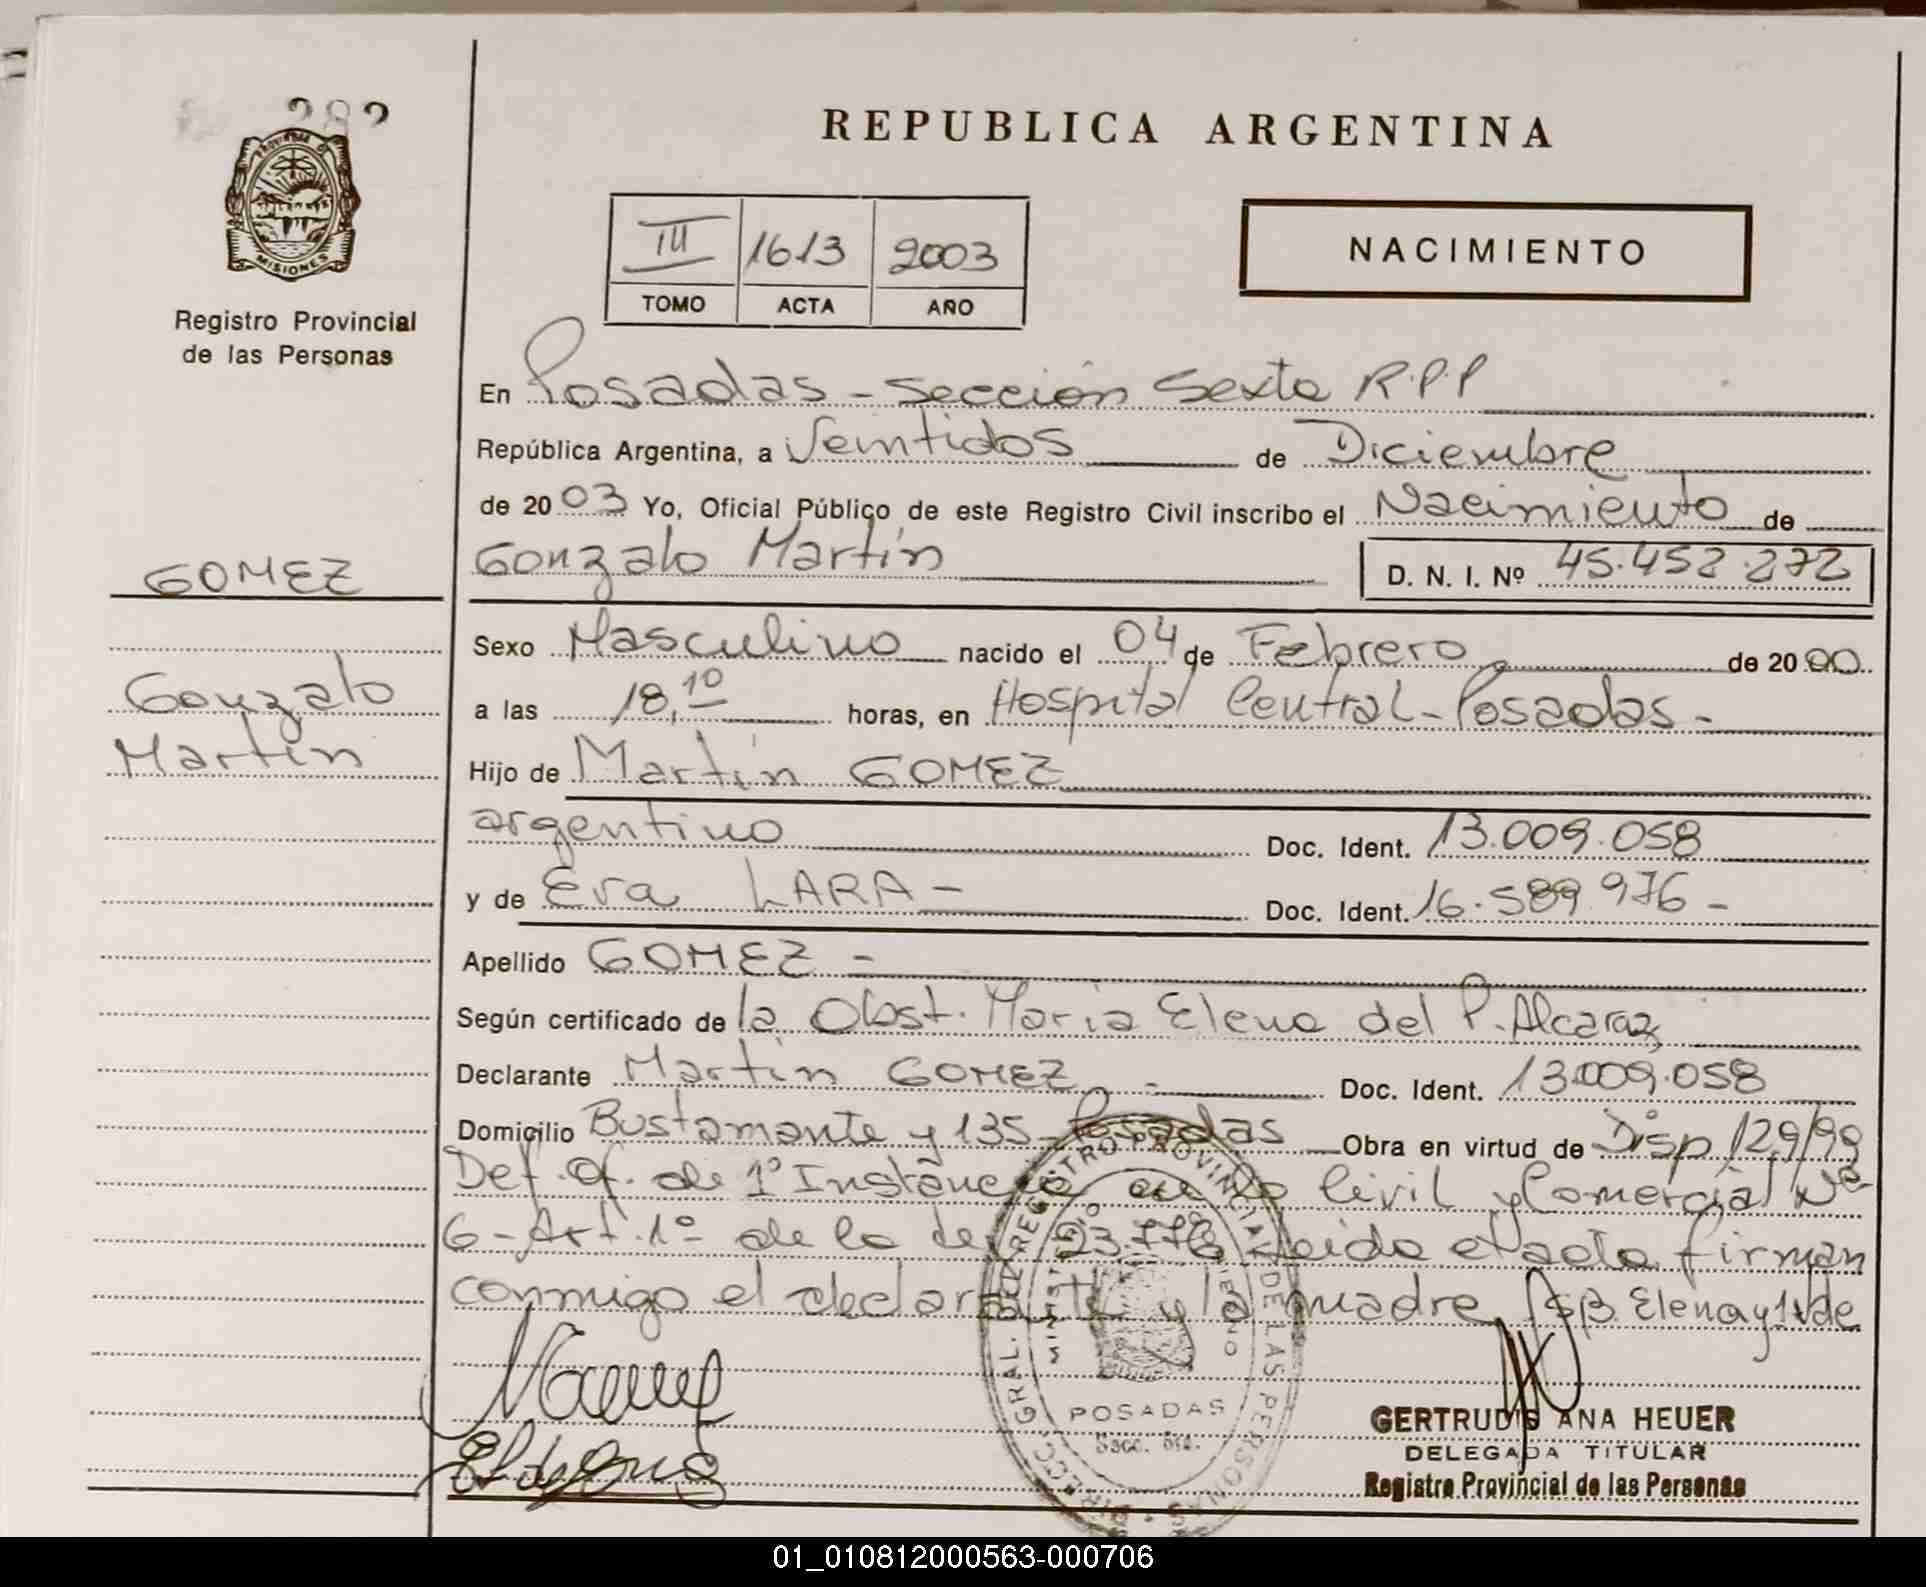 282
PROVINCIA DE
MISIONES
Registro Provincial
de las Personas
REPUBLICA ARGENTINA
III 1613 2003
TOMO ACTA AÑO
NACIMIENTO
En Posadas - Sección Sexta R.P.P
República Argentina, a Veintidos de Diciembre
de 2003 Yo, Oficial Público de este Registro Civil inscribo el Nacimiento de
Gonzalo Martín D. N. I. Nº 45.452.272
GOMEZ
Gonzalo
Martín
Sexo Masculino nacido el 04 de Febrero de 2000
a las 18,10 horas, en Hospital Central - Posadas -
Hijo de Martín GOMEZ
argentino Doc. Ident. 13.009.058
y de Eva LARA - Doc. Ident. 16.589.976 -
Apellido GOMEZ -
Según certificado de la Obst. María Elena del P. Alcaraz
Declarante Martín GOMEZ - Doc. Ident. 13.009.058
Domicilio Bustamante y 135 - Posadas Obra en virtud de Disp 129/99
Def. Of. de 1º Instancia en lo Civil y Comercial Nº
6 - Art. 1º de la ley 23.776 leido el acta firman
conmigo el declarante y la madre
DIRECC. GRAL. DEL REGISTRO PROVINCIAL DE LAS PERSONAS
MINISTERIO DE GOBIERNO
POSADAS
Secc. 6ta.
GERTRUDIS ANA HEUER
DELEGADA TITULAR
Registro Provincial de las Personas
01_010812000563-000706